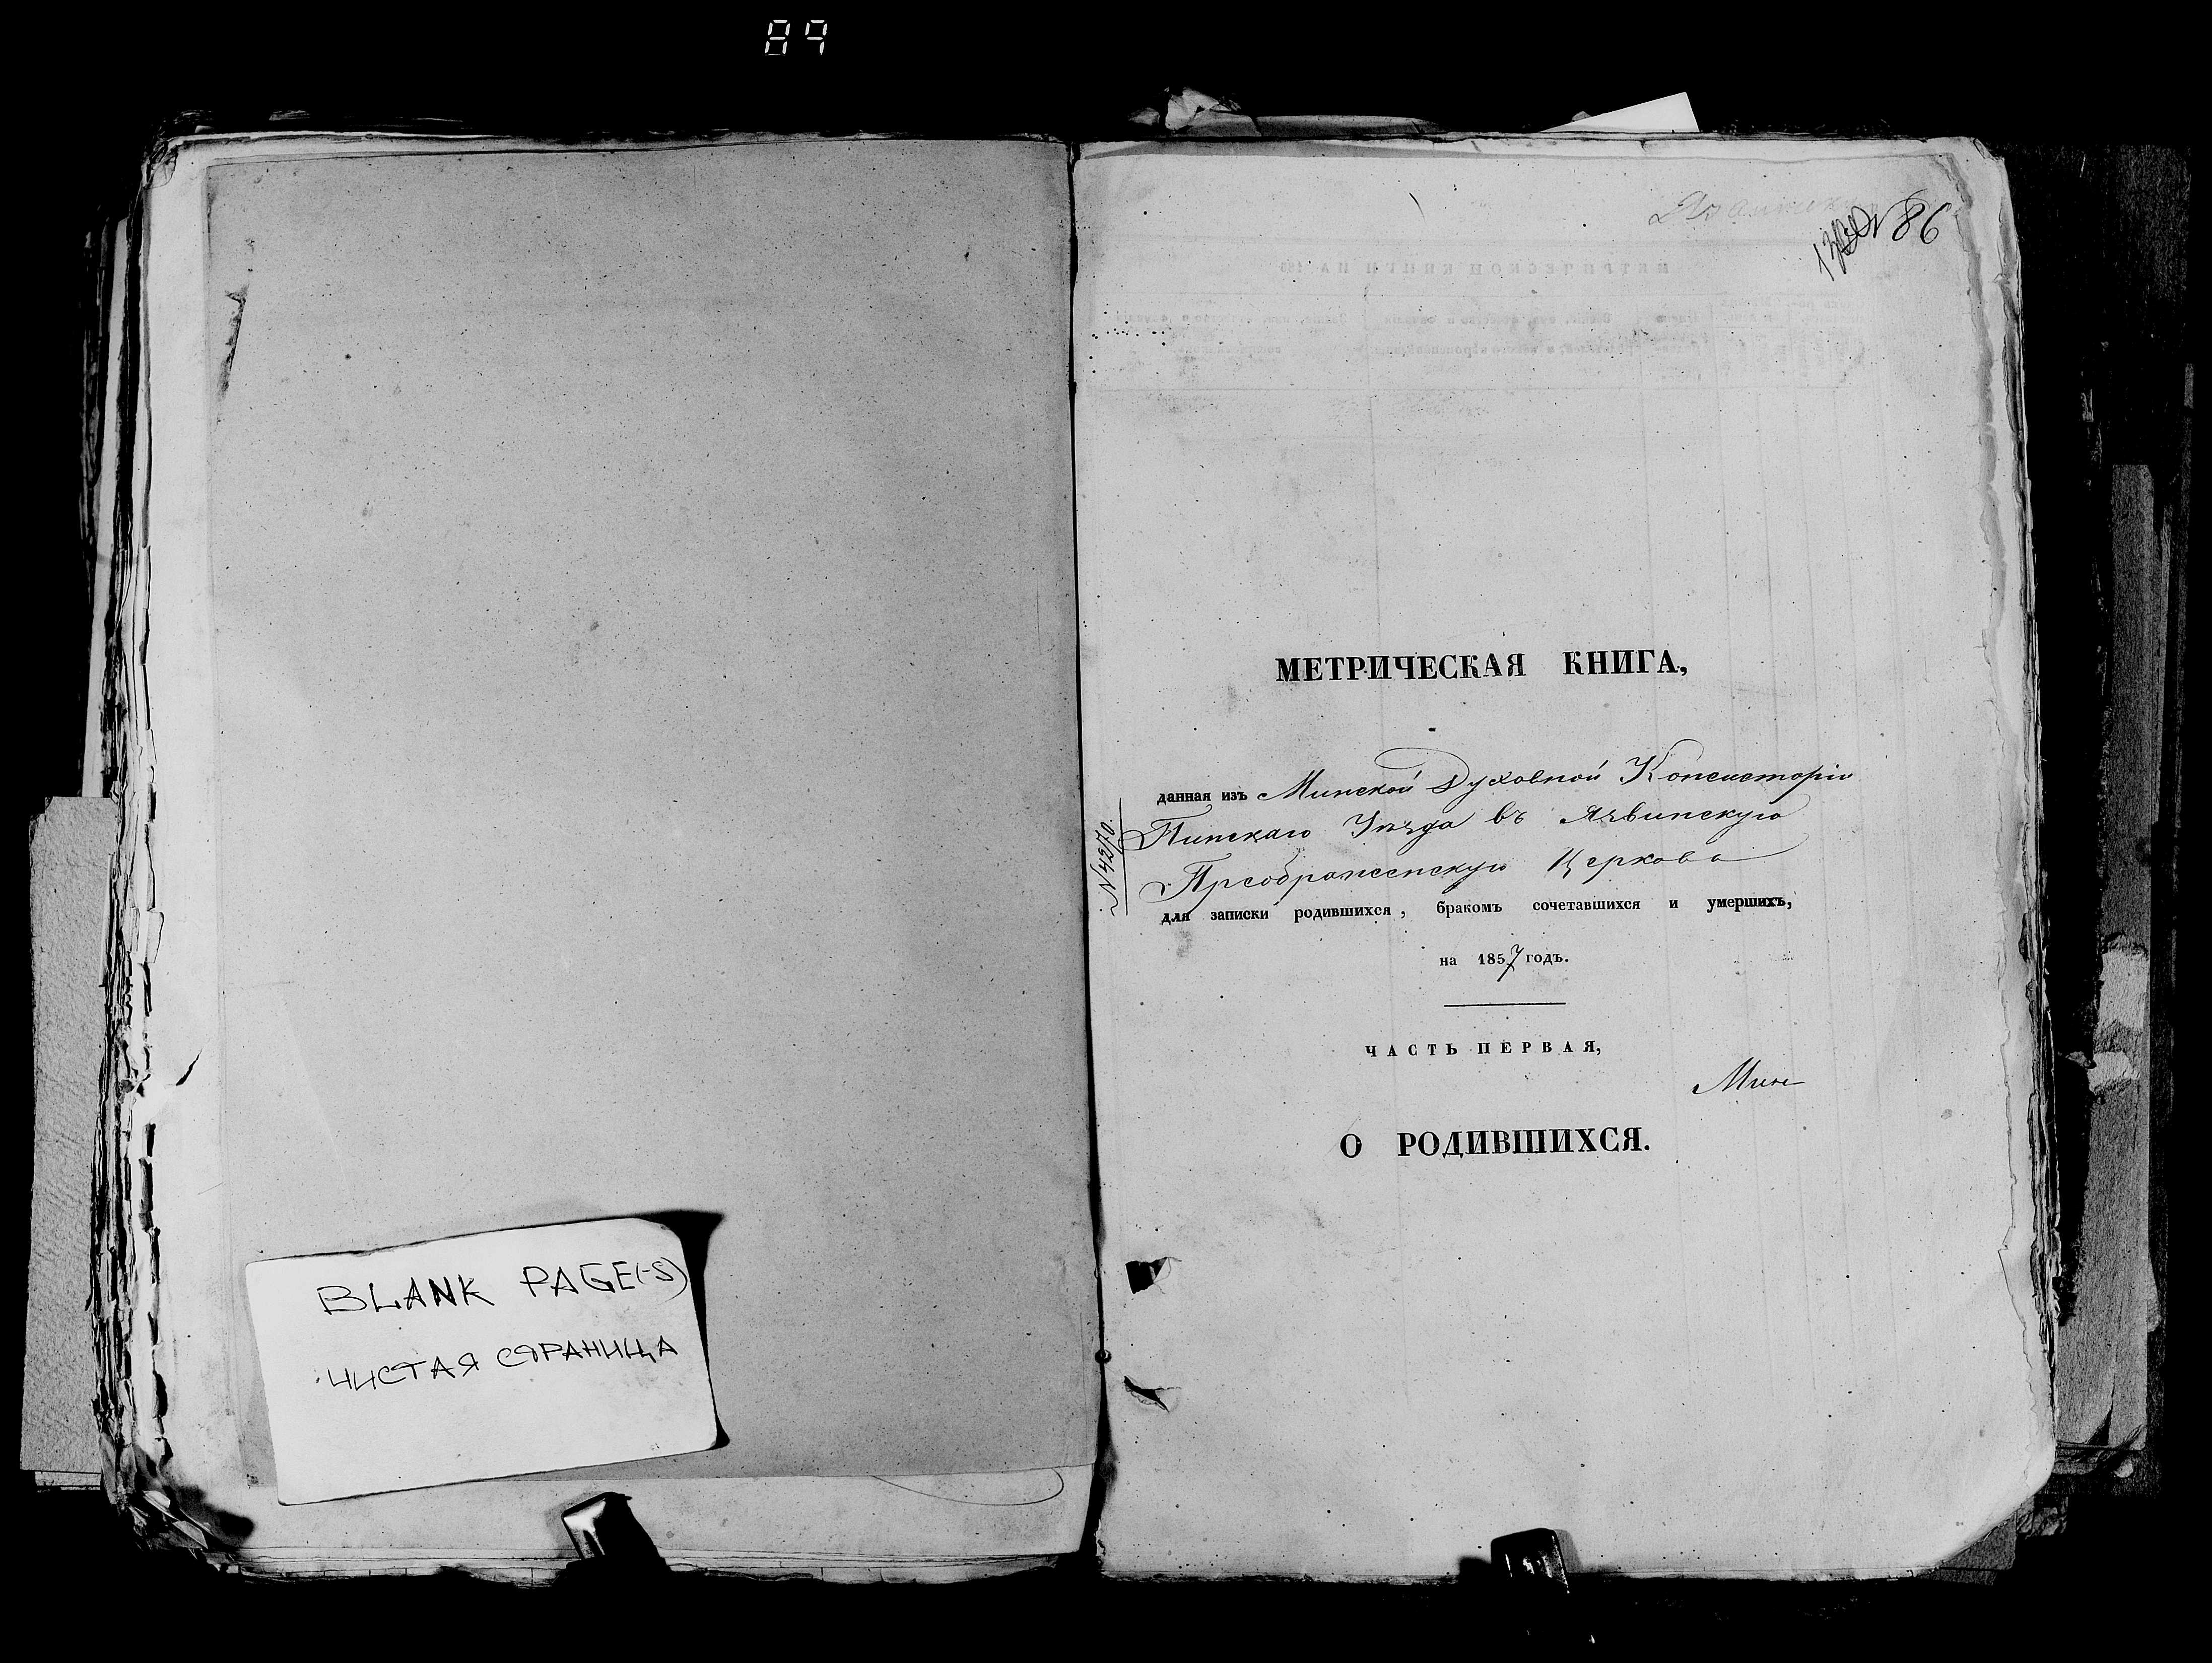 89
BLANK PAGE(-S)
ЧИСТАЯ СТРАНИЦА
86
МЕТРИЧЕСКАЯ КНИГА,
данная изъ Минской Духовной Консисторіи
Пинскаго Уѣзда въ Язвинскую
Преображенскую Церковь
№ 4270.
для записки родившихся, бракомъ сочетавшихся и умершихъ,
на 1857 годъ.
ЧАСТЬ ПЕРВАЯ,
Мин
О РОДИВШИХСЯ.